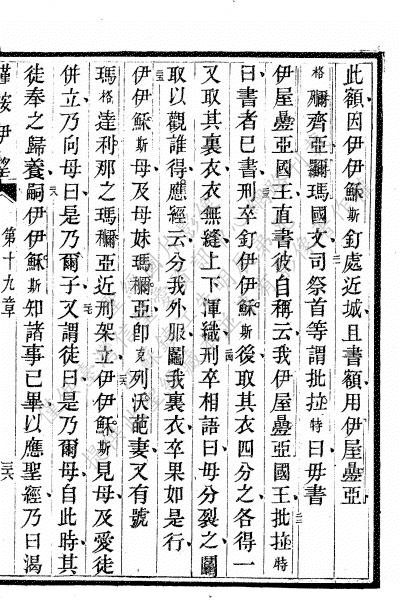 此額因伊伊穌斯釘處近城且書額用伊屋疊亞
格彌齊亞爾瑪國文司祭首等謂批拉特曰毋書
伊屋疊亞國王直書彼自稱云我伊屋疊亞國王批拉特
曰書者已書刑卒釘伊伊穌斯後取其衣四分之各得一
又取其裏衣衣無縫上下渾織刑卒相語曰毋分裂之鬮
取以觀誰得應經云分我外服鬮我裏衣卒果如是行
伊伊穌斯母及母妹瑪彌亞卽克列沃葩妻又有號
瑪格達利那之瑪彌亞近刑架立伊伊穌斯見母及愛徒
併立乃向母曰是乃爾子又謂徒曰是乃爾母自此時其
徒奉之歸養嗣伊伊穌斯知諸事已畢以應聖經乃曰渴
第十九章